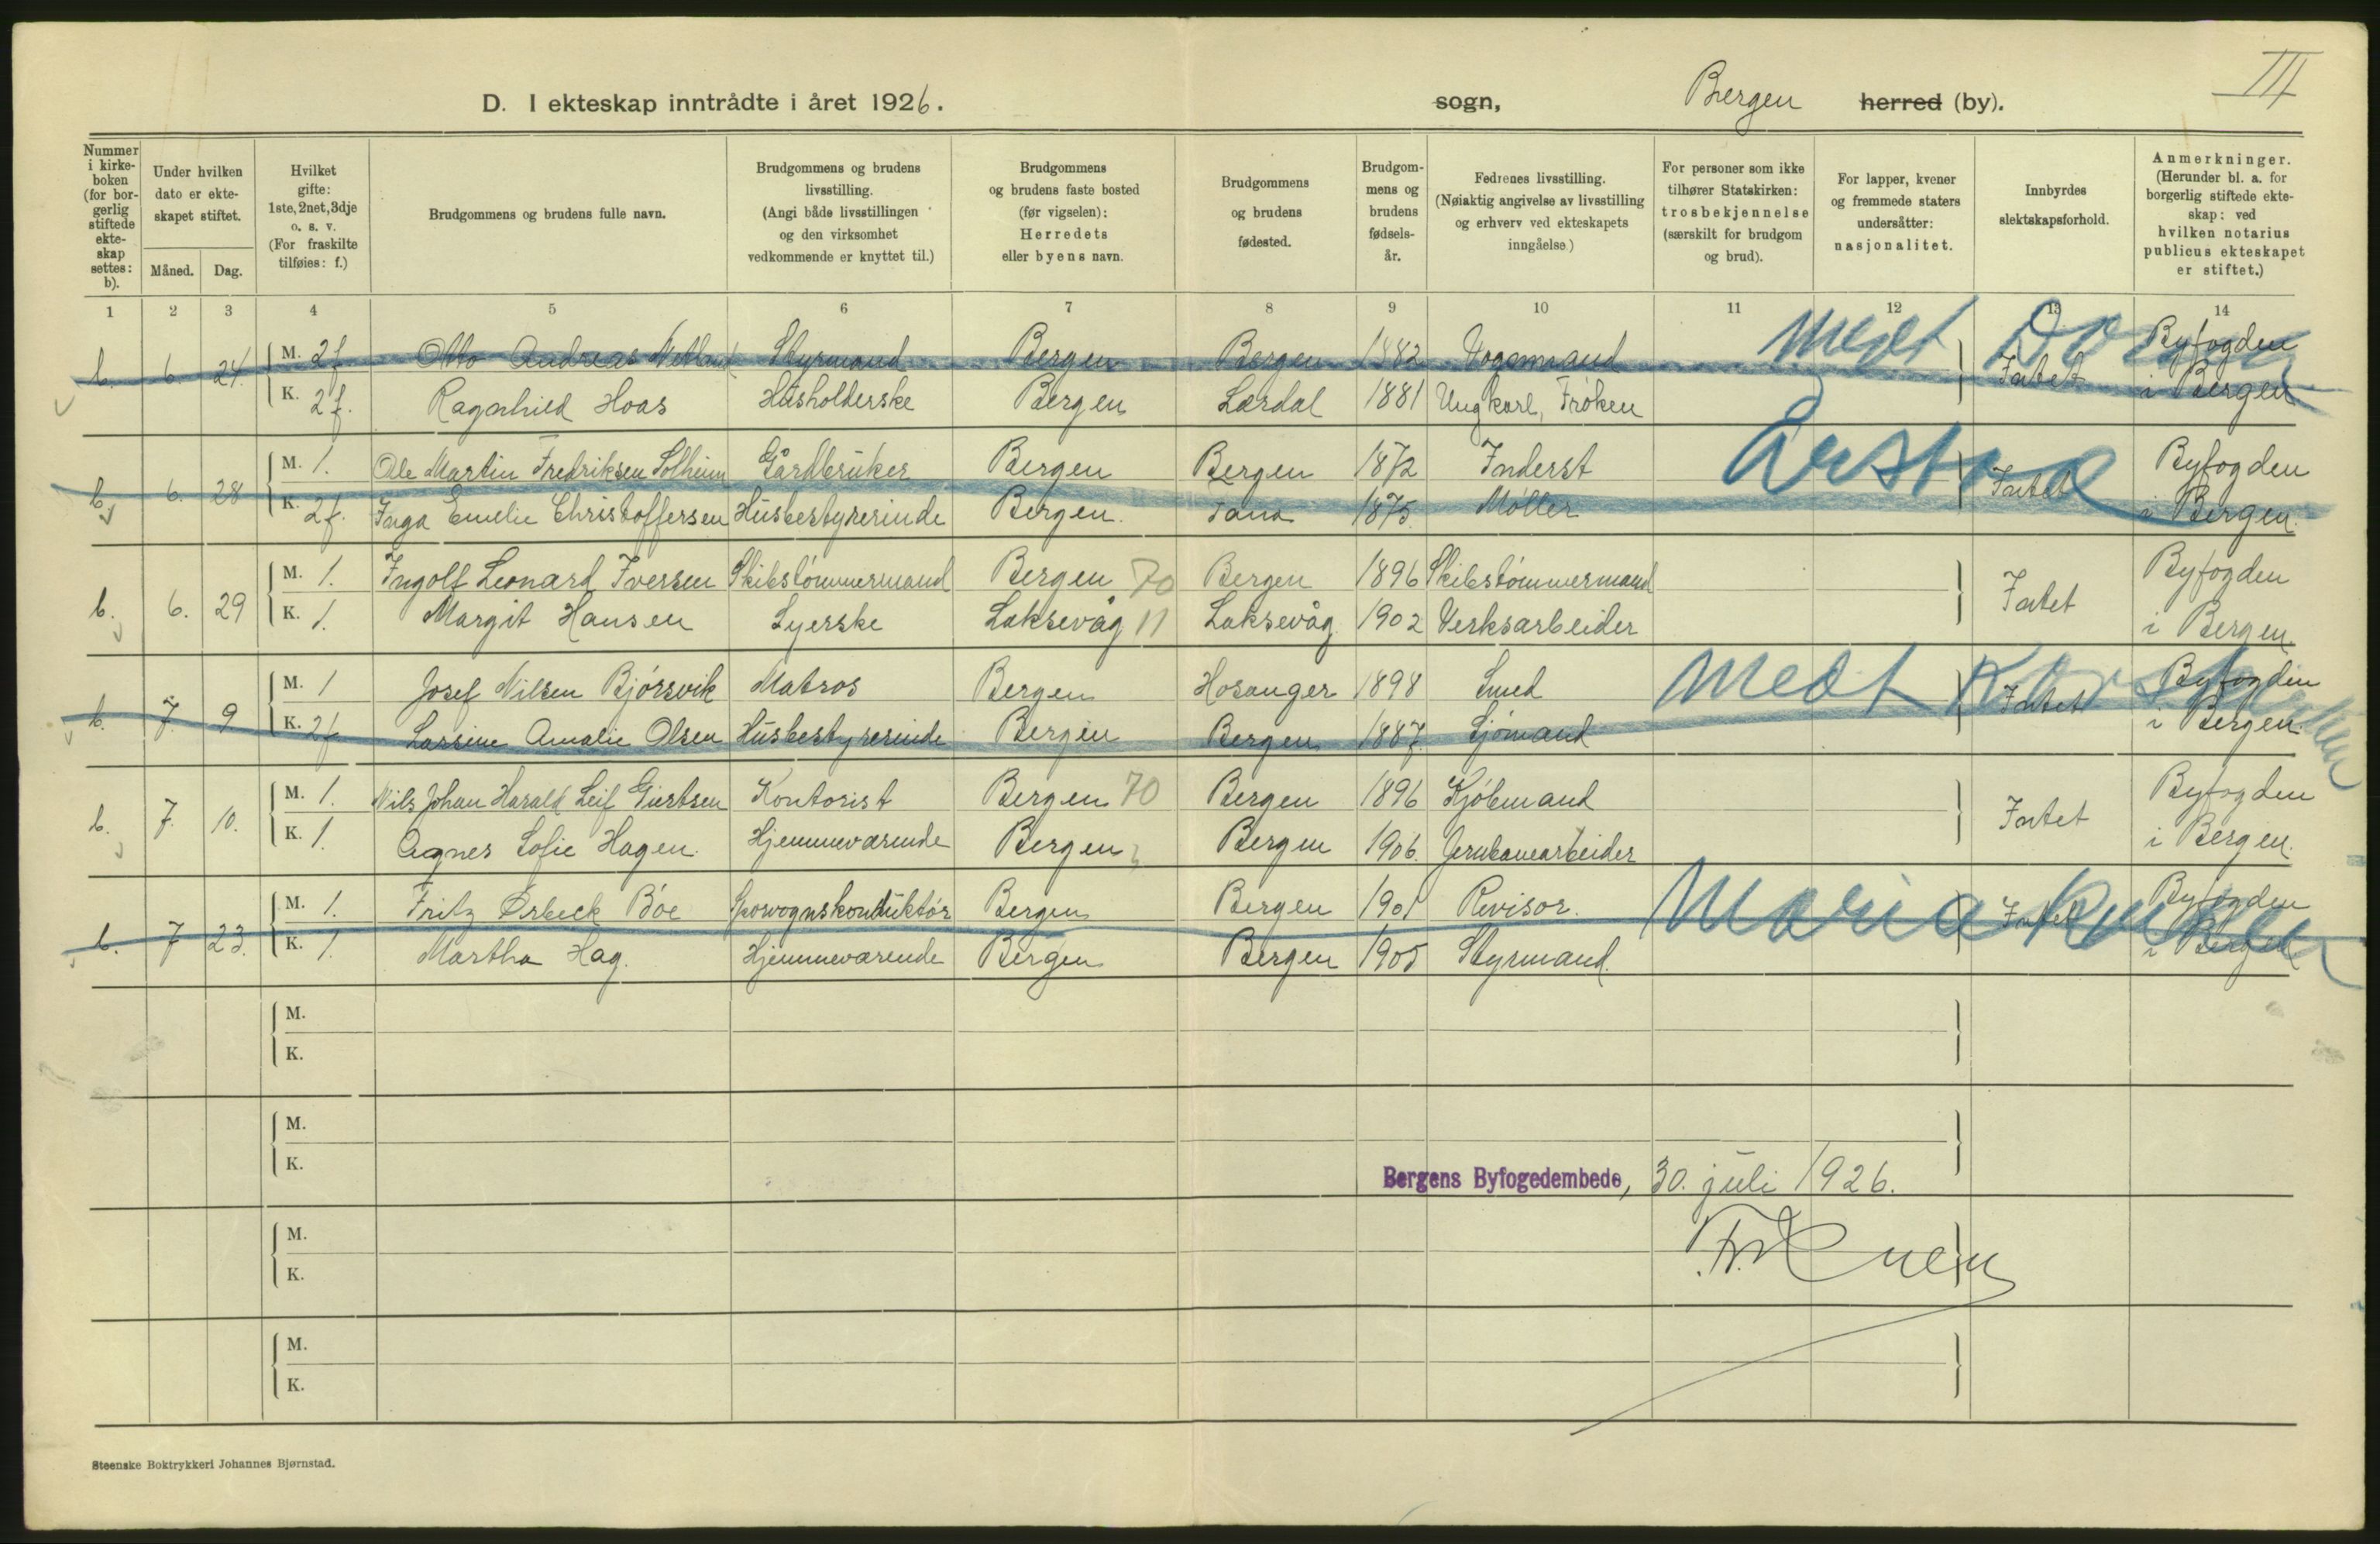 III
D. I ekteskap inntrådte i året 1926. sogn, Bergen herred (by).
Nummer i kirke-boken (for bor-gerlig stiftede ekte-skap settes: b).
Under hvilken dato er ekte-skapet stiftet.
Måned. Dag.
Hvilket gifte: 1ste, 2net, 3dje o. s. v. (For fraskilte tilføies: f.)
Brudgommens og brudens fulle navn.
Brudgommens og brudens livsstilling. (Angi både livsstillingen og den virksomhet vedkommende er knyttet til.)
Brudgommens og brudens faste bosted (før vigselen): Herredets eller byens navn.
Brudgommens og brudens fødested.
Brudgom-mens og brudens fødsels-år.
Fedrenes livsstilling. (Nøiaktig angivelse av livsstilling og erhverv ved ekteskapets inngåelse.)
For personer som ikke tilhører Statskirken: trosbekjennelse (særskilt for brudgom og brud).
For lapper, kvener og fremmede staters undersåtter: nasjonalitet.
Innbyrdes slektskapsforhold.
Anmerkninger. (Herunder bl. a. for borgerlig stiftede ekte-skap: ved hvilken notarius publicus ekteskapet er stiftet.)
1 2 3 4 5 6 7 8 9 10 11 12 13 14
b. 6. 24. M. 2f Otto Andreas Styrmand Bergen Bergen 1882 Vognmand Medt Intet Byfogden
K. 2f. Ragnhild Hoas Husholderske Bergen Lærdal 1881 Ungkarl, Frøken i Bergen
b. 6. 28 M. 1. Ole Martin Fredriksen Solheim Gårdbruker Bergen Bergen 1872 Inderst Årstad Intet Byfogden
K. 2f. Inga Emelie Christoffersen Husbestyrerinde Bergen. Tana 1875. Møller i Bergen.
b. 6. 29 M. 1. Ingolf Leonard Iversen Skibstømmermand Bergen 70 Bergen 1896 Skibstømmermand Intet Byfogden
K. 1. Margit Hansen Syerske Laksevåg 11 Laksevåg. 1902 Verksarbeider i Bergen.
b. 7. 9 M. 1 Josef Nilsen Bjørsvik Matros Bergen Hosanger 1898 Smed Medt Intet Byfogden
K. 2f Lassine Amalie Olsen Husbestyrerinde Bergen Bergen 1887. Sjømand i Bergen.
b. 7. 10. M. 1. Nils Johan Harald Leif Giertsen Kontorist Bergen 70 Bergen 1896 Kjøbmand Intet Byfogden
K. 1. Agnes Sofie Hagen. Hjemmeværende Bergen Bergen 1906. Jernbanearbeider i Bergen.
b. 7 23. M. 1. Fritz Ørbeck Bøe Sporvognskonduktør Bergen Bergen 1901 Revisor. Maria Intet Byfogden
K. 1. Martha Hag. Hjemmeværende Bergen Bergen 1905 Styrmand. i Bergen
M.
K.
M.
K.
Bergens Byfogedembede, 30. juli 1926.
M.
K.
M.
K.
Steenske Boktrykkeri Johannes Bjørnstad.